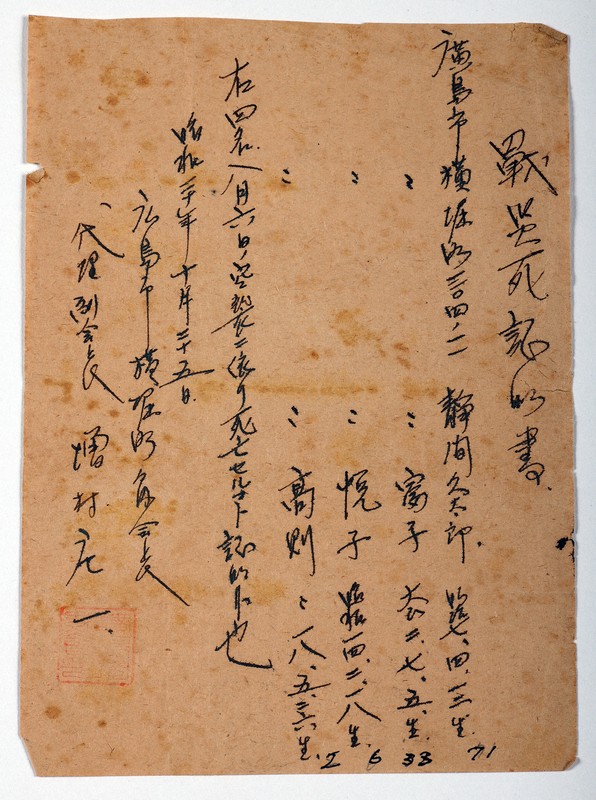 戰災死証明書
廣島市横堀町三〇四ノ一 静間久太郎 明治七、四、一三生 71
〃 〃 富子 大正二、七、五、生 33
〃 〃 悦子 昭和一四、二、一八生 6
〃 〃 高則 〃 一八、五、二六生 2
右四名八月六日ノ空襲ニ依リ死亡セルコト証明候也
昭和二十年十月二十五日
広島市横堀町 会長
代理副会長 増村庄一